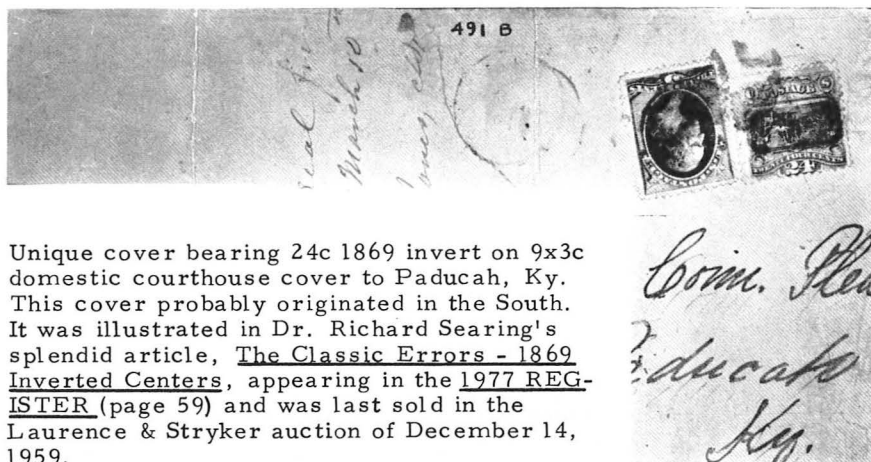 491 B
March 10
Unique cover bearing 24c 1869 invert on 9x3c
domestic courthouse cover to Paducah, Ky.
This cover probably originated in the South.
It was illustrated in Dr. Richard Searing's
splendid article, The Classic Errors - 1869
Inverted Centers, appearing in the 1977 REG-
ISTER (page 59) and was last sold in the
Laurence & Stryker auction of December 14,
1959.
Com. Plea
aducah
Ky.